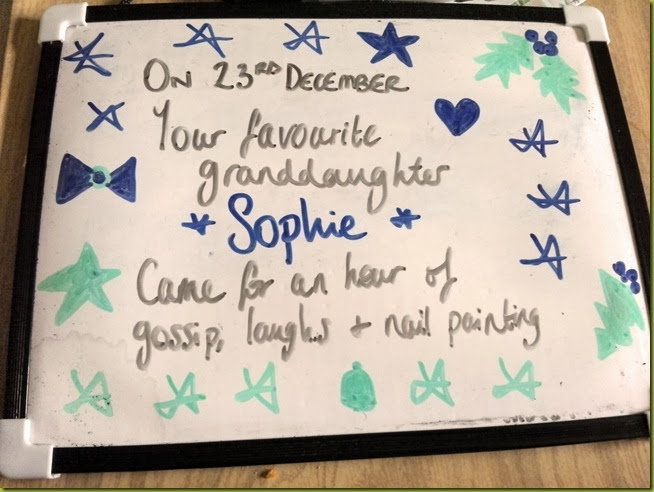 ON 23RD DECEMBER
Your favourite
granddaughter
* Sophie *
Came for an hour of
gossip, laughs + nail painting